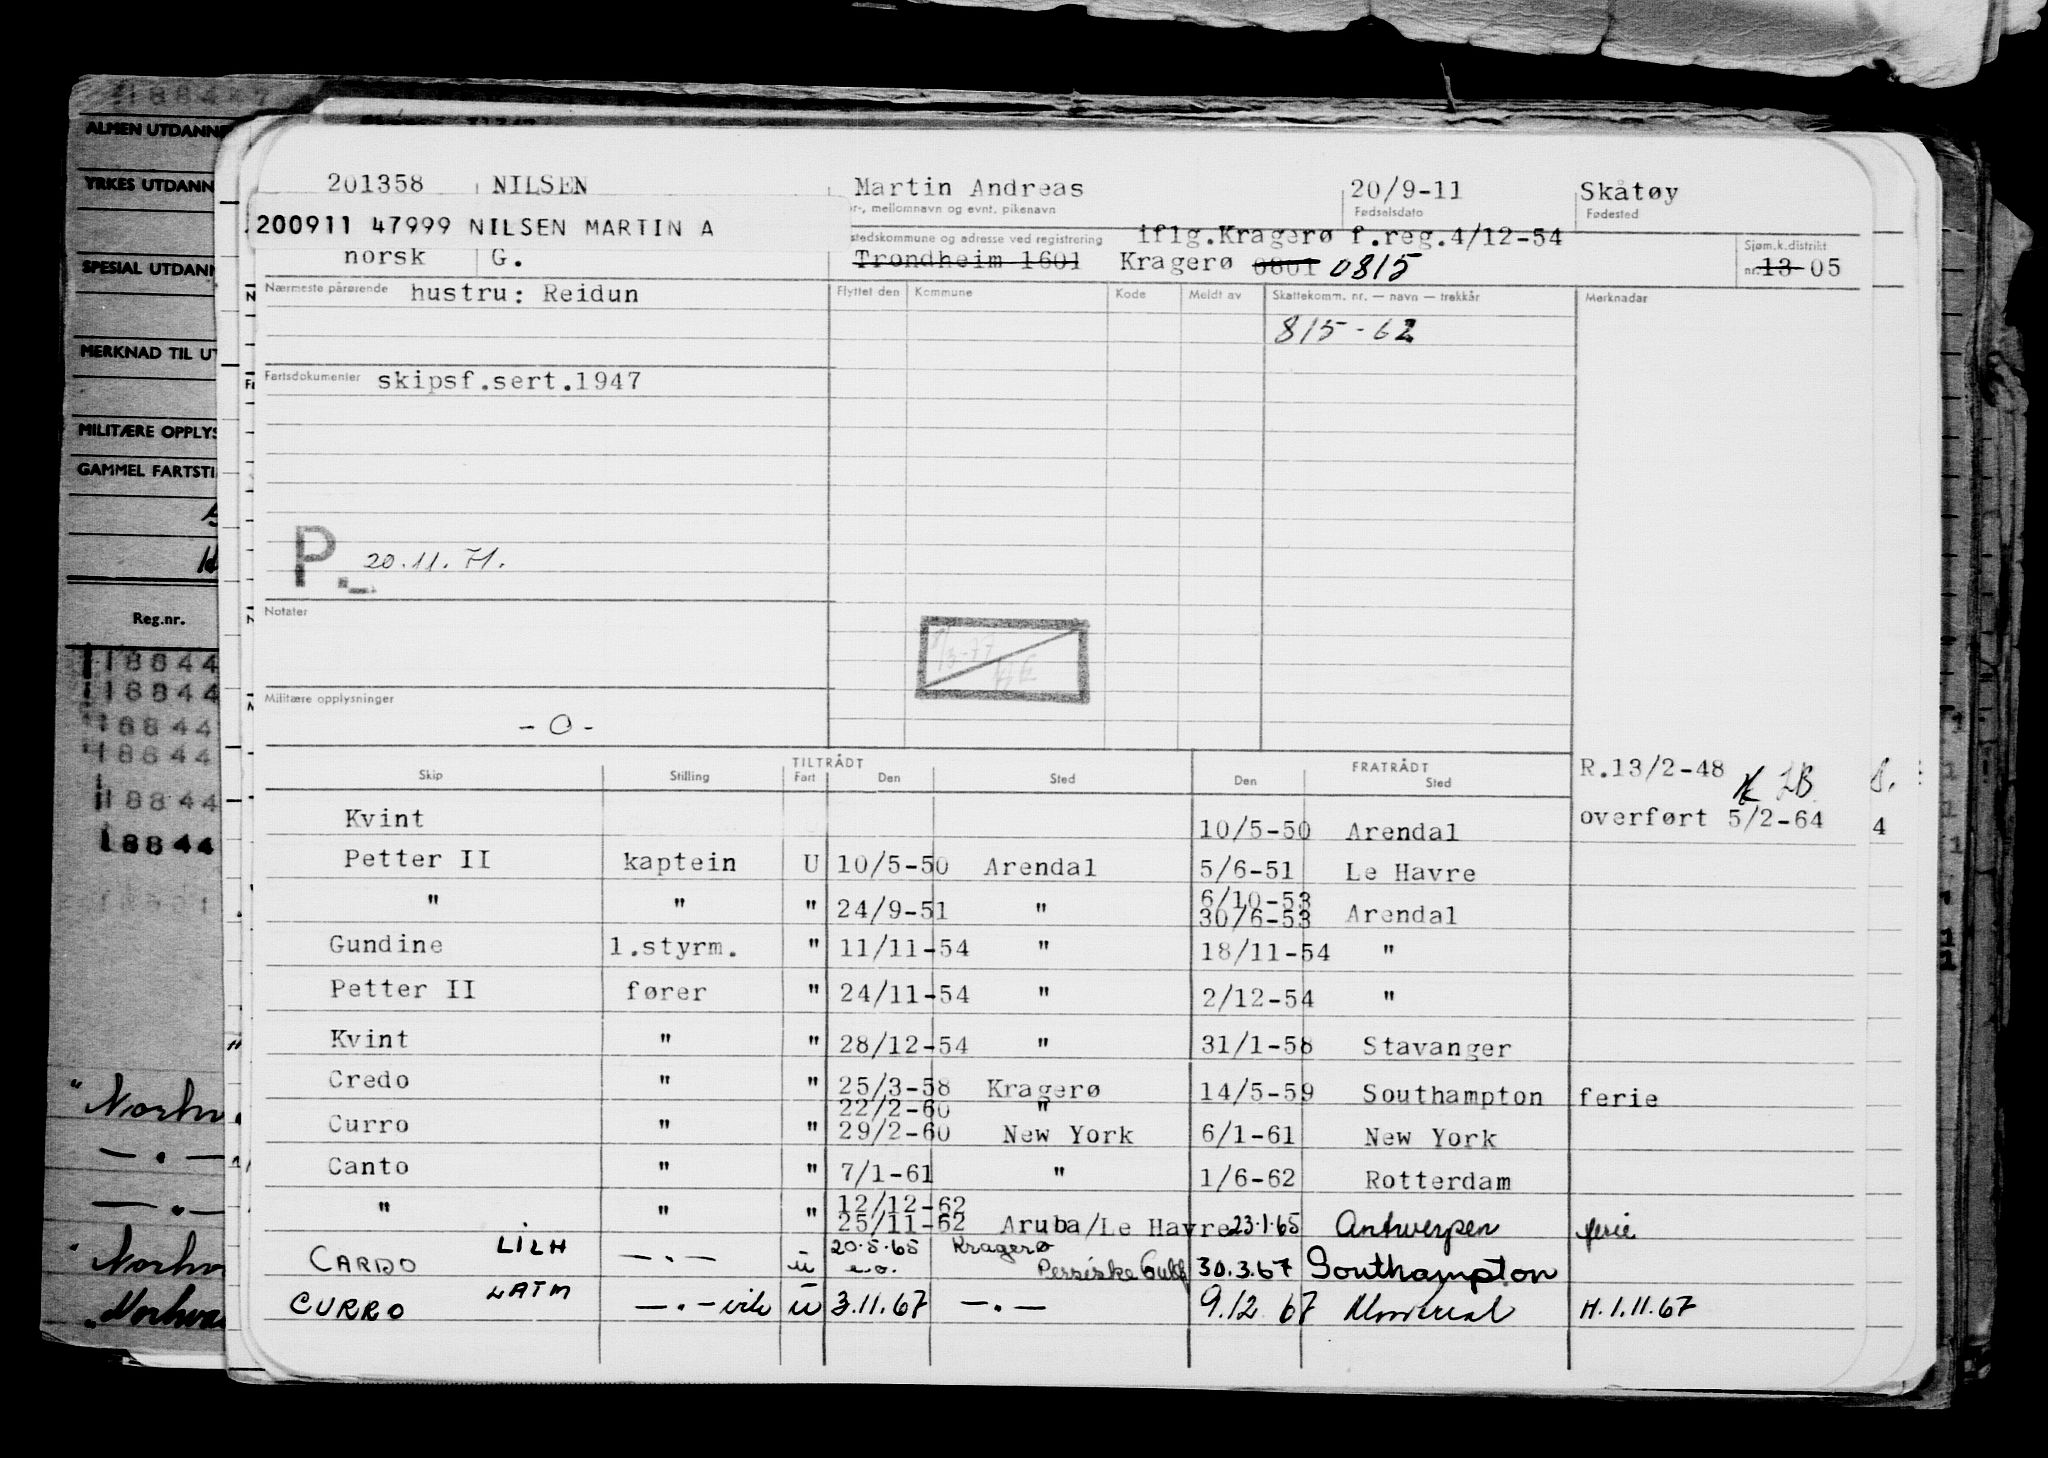 188447
ALMEN UTDANNE
YRKES UTDANN
SPESIAL UTDANN
MERKNAD TIL UT
MILITÆRE OPPLYS
GAMMEL FARTSTI
Reg.nr.
18844
18844
18844
18844
18844
18844
201358 NILSEN Martin Andreas 20/9-11 Skåtøy
or-, mellomnavn og evnt. pikenavn Fødselsdato Fødested
200911 47999 NILSEN MARTIN A
stedskommune og adresse ved registrering iflg.Kragerø f.reg.4/12-54 Sjøm.k.distrikt
norsk G. Trondheim 1601 Kragerø 0801 0815 nr. 13 05
Nærmeste pårørende hustru: Reidun Flyttet den Kommune Kode Meldt av Skattekomm. nr. — navn — trekkår Merknader
815-62
Fartsdokumenter skipsf.sert.1947
P. 20.11.71.
Notater
Militære opplysninger
-0-
TILTRÅDT FRATRÅDT R.13/2-48
Skip Stilling Fart Den Sted Den Sted
overført 5/2-64 4
Kvint 10/5-50 Arendal
Petter II kaptein U 10/5-50 Arendal 5/6-51 Le Havre
6/10-53
" " " 24/9-51 " 30/6-53 Arendal
Gundine 1.styrm. " 11/11-54 " 18/11-54 "
Petter II fører " 24/11-54 " 2/12-54 "
Kvint " " 28/12-54 " 31/1-58 Stavanger
Credo " " 25/3-58 Kragerø 14/5-59 Southampton ferie
22/2-60 "
Curro " " 29/2-60 New York 6/1-61 New York
Canto " " 7/1-61 " 1/6-62 Rotterdam
12/12-62
" " " 25/11-62 Aruba/Le Havre 23.1.65 Antwerpen ferie
LILH 20.5.65 Kragerø
CARDO —.— u Persiske Gulf 30.3.67 Southampton
LATM
CURRO —.— u 3.11.67 —.— 9.12 67 Montreal H.1.11.67